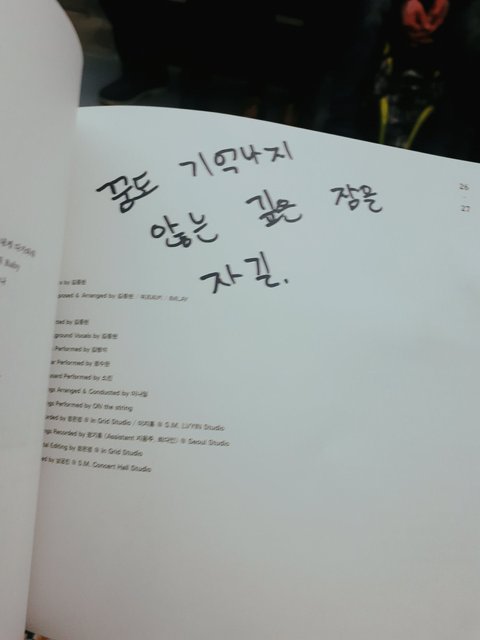 꿈도 기억나지
않는 깊은 잠을
자길.
26
-
27
by 김종현
posed & Arranged by 김종현 / 위프리키 /
by 김종현
ground Vocals by 김종현
Performed by
Performed by
board Performed by 소진
ngs Arranged & Conducted by 이나일
ngs Performed by ON the string
orded by 정은경 @ In Grid Studio / 이지홍 @ S.M. LVYIN Studio
ngs Recorded by 정기홍 (Assistant 지용주, 최다인) @ Seoul Studio
tal Editing by 정은경 @ In Grid Studio
ed by 남궁진 @ S.M. Concert Hall Studio
Baby